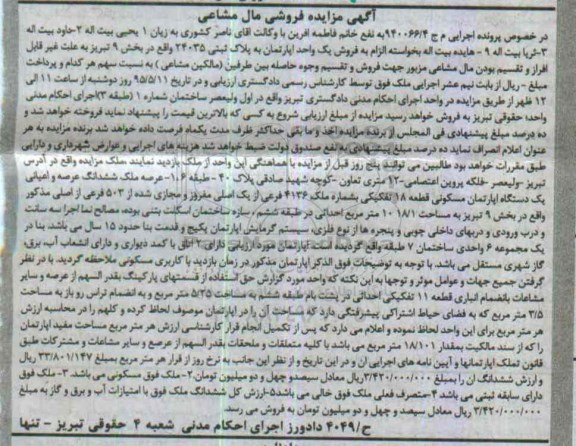 آگهی مزایده فروشی مال مشاعی
در خصوص پرونده اجرایی م ج ۹۴۰۰۶۶/۴ به نفع خانم فاطمه آفرین با وکالت آقای ناصر کشوری به زیان ۱ یحیی بیت اله ۲-حاود بیت اله
۳-ثریا بیت اله ۹ - هایده بیت اله بخواسته الزام به فروش یک واحد آپارتمان به پلاک ثبتی ۲۴۰۳۵ واقع در بخش ۹ تبریز به علت غیر قابل
افراز و تقسیم بودن مال مشاعی مزبور جهت فروش و تقسیم وجوه حاصله بین طرفین (مالکین مشاعی) به نسبت سهم هر کدام و پرداخت
مبلغ - ریال از بابت نیم عشر اجرایی ملک فوق توسط کارشناس رسمی دادگستری ارزیابی و در تاریخ ۹۵/۵/۱۱ روز دوشنبه از ساعت ۱۱ الی
۱۲ ظهر از طریق مزایده در واحد اجرای احکام مدنی دادگستری تبریز واقع در اول ولیعصر ساختمان شماره ۱ (طبقه ۳) اجرای احکام مدنی
واحد؛ حقوقی تبریز به فروش خواهد رسید مزایده از مبلغ ارزیابی شروع به کسی که بالاترین قیمت را پیشنهاد نماید فروخته خواهد شد و
ده درصد مبلغ پیشنهادی فی المجلس از برنده مزایده اخذ و ما بقی حداکثر ظرف مدت یکماه فرصت داده خواهد شد برنده مزایده به هر
عنوان اعلام انصراف نماید ده درصد مبلغ پیشنهادی به نفع صندوق دولت ضبط خواهد شد هزینه های اجرایی و عوارض شهرداری و دارایی
طبق مقررات خواهد بود طالبین می توانند پنج روز قبل از مزایده با هماهنگی این واحد از ملک بازدید نمایند ،ملک مزایده واقع در آدرس
تبریز -ولیعصر -فلکه پروین اعتصامی-۱۲ متری تعاون -کوچه شهید صادقی پلاک ۴۰ -طبقه ۶-۱-عرصه ملک ششدانگ عرصه و اعیانی
یک دستگاه آپارتمان مسکونی قطعه ۱۸ تفکیکی بشماره ملک ۴۱۳۶ فرعی از یک اصلی مفروز و مجازی شده از ۵۰۳ فرعی از اصلی مذکور
واقع در بخش ۹ تبریز به مساحت ۱۸/۱ ۱۰ متر مربع احداثی در طبقه ششم، سازه ساختمان اسکلت بتنی بوده، مصالح نما اجرا سه سانت
و درب ورودی و دربهای داخلی چوبی و پنجره ها از نوع فلزی، سیستم گرمایش آپارتمان پکیج و قدمت بنا حدود ۱۵ سال می باشد. بنا در
یک مجموعه ۶ واحدی ساختمان ۷ طبقه واقع گردیده است آپارتمان مورد ارزیابی دارای ۲ اتاق با کمد دیواری و دارای انشعاب آب، برق،
گاز شهری مستقل می باشد. با توجه به توضیحات فوق الذکر آپارتمان مذکور در زمان بازدید با کاربری مسکونی ملاحظه گردید. با در نظر
گرفتن جمیع جهات و عوامل موثر و توجها به این نکته که واحد مورد گزارش حق استفاده از قسمتهای پارکینگ بقدر السهم از عرصه و سایر
مشاعات بانضمام انباری قطعه ۱۱ تفکیکی احداثی در پشت بام طبقه ششم به مساحت ۵/۲۵ متر مربع و به انضمام تراس رو باز به مساحت
۳/۵ متر مربع که به فضای حیاط اشتراکی پیشرفتگی دارد که مساحت آن را در آپارتمان موصوف لحاظ کرده و کلهم را در محاسبه ارزش
هر متر مربع برای این واحد لحاظ نموده و اعلام می دارد که پس از تکمیل انجام قرار کارشناسی ارزش هر متر مربع مساحت مفید آپارتمان
را که از سند مالکیت بمقدار ۱۸/۱۰۱ متر مربع می باشد با کلیه متعلقات و ملحقات بقدر السهم از عرصع و سایر مشاعات و مشترکات طبق
قانون تملک آپارتمانها و آیین نامه های اجرایی آن و در این تاریخ و از نظر این جانب به نرخ روز از قرار هر متر مربع بمبلغ ۳۳/۸۰۱/۱۴۷ ریال
و ارزش ششدانگ آن را بمبلغ ۳/۴۲۰/۰۰۰/۰۰۰ ریال معادل سیصدو چهل و دو میلیون تومان.۲-ملک فوق مسکونی می باشد. ۳- ملک فوق
دارای سابقه ثبتی می باشد ۴-متصرف فعلی ملک فوق خالی می باشد۵-ارزش کل ششدانگ ملک فوق با امتیازات آب و برق و گاز به مبلغ
۳/۴۲۰/۰۰۰/۰۰۰ ریال معادل سیصد و چهل و دو میلیون تومان به فروش می رسد.
ح/۴۰۴۹ دادورز اجرای احکام مدنی شعبه ۴ حقوقی تبریز - تنها